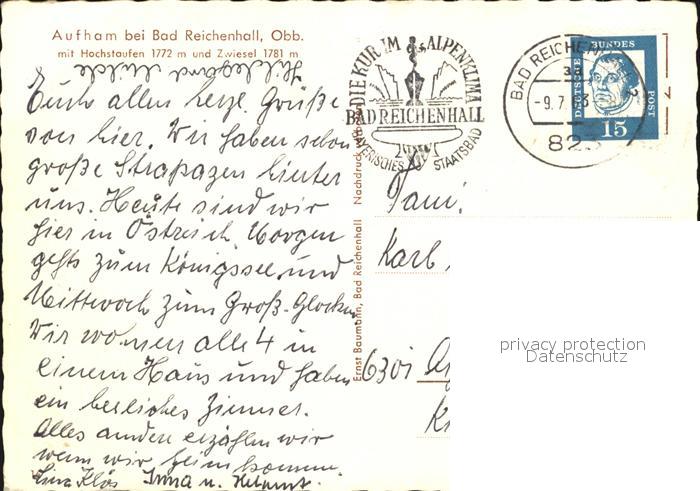 Aufham bei Bad Reichenhall, Obb.
mit Hochstaufen 1772 m und Zwiesel 1781 m
Euch allen herzl. Grüße
von hier. Wir haben schon
große Strapazen hinter
uns. Heute sind wir
hier in Östreich. Morgen
gehts zum Königssee und
Mittwoch zum Groß-Glockn
Wir wohnen alle 4 in
einem Haus und haben
ein herliches Zimmer.
Alles andere erzählen wir
wenn wir heim kommen.
Irma u. Helmut.
Ernst Baumann, Bad Reichenhall Nachdruck
DIE KUR IM ALPENKLIMA
BAD REICHENHALL
BAYERISCHES STAATSBAD
BAD REICHENHALL 2
-9.7.
823
DEUTSCHE BUNDES POST
15
Fam.
Karl
6301
privacy protection
Datenschutz